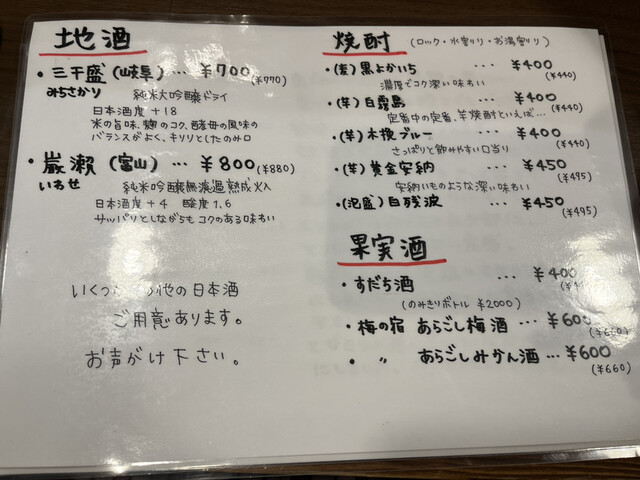 地酒
・三千盛(岐阜)…¥700(¥770)
みちさかり 純米大吟醸ドライ
日本酒度+18
米の旨味、麹のコク、酵母の風味の
バランスがよく、キリリとしたのみ口
・巌瀬(富山)…¥800(¥880)
いわせ 純米吟醸無濾過熟成火入
日本酒度+4 酸度1.6
サッパリとしながらもコクのある味わい
いくつか の他の日本酒
ご用意あります。
お声がけ下さい。
焼酎(ロック・水割り・お湯割り)
・(麦)黒よかいち…¥400(¥440)
濃厚でコク深い味わい
・(芋)白霧島…¥400(¥440)
定番中の定番、芋焼酎といえば…
・(芋)木挽ブルー…¥400(¥440)
さっぱりと飲みやすい口当り
・(芋)黄金安納…¥450(¥495)
安納いものような深い味わい
・(泡盛)白残波…¥450(¥495)
果実酒
・すだち酒…¥400
(のみきりボトル ¥2000)
・梅の宿 あらごし梅酒…¥600(¥660)
・〃 あらごしみかん酒…¥600(¥660)